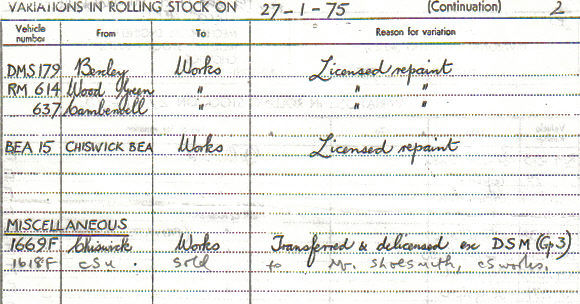 VARIATIONS IN ROLLING STOCK ON 27-1-75 (Continuation) 2
Vehicle number From To Reason for variation
DMS 179 Bexley Works Licensed repaint
RM 614 Wood Green " " "
637 Camberwell " " "
BEA 15 CHISWICK BEA Works Licensed repaint
MISCELLANEOUS
1669F Chiswick Works Transferred & delicensed ex DSM (Gp.3)
1618F CSU. Sold to Mr. Shoesmith, CS works.